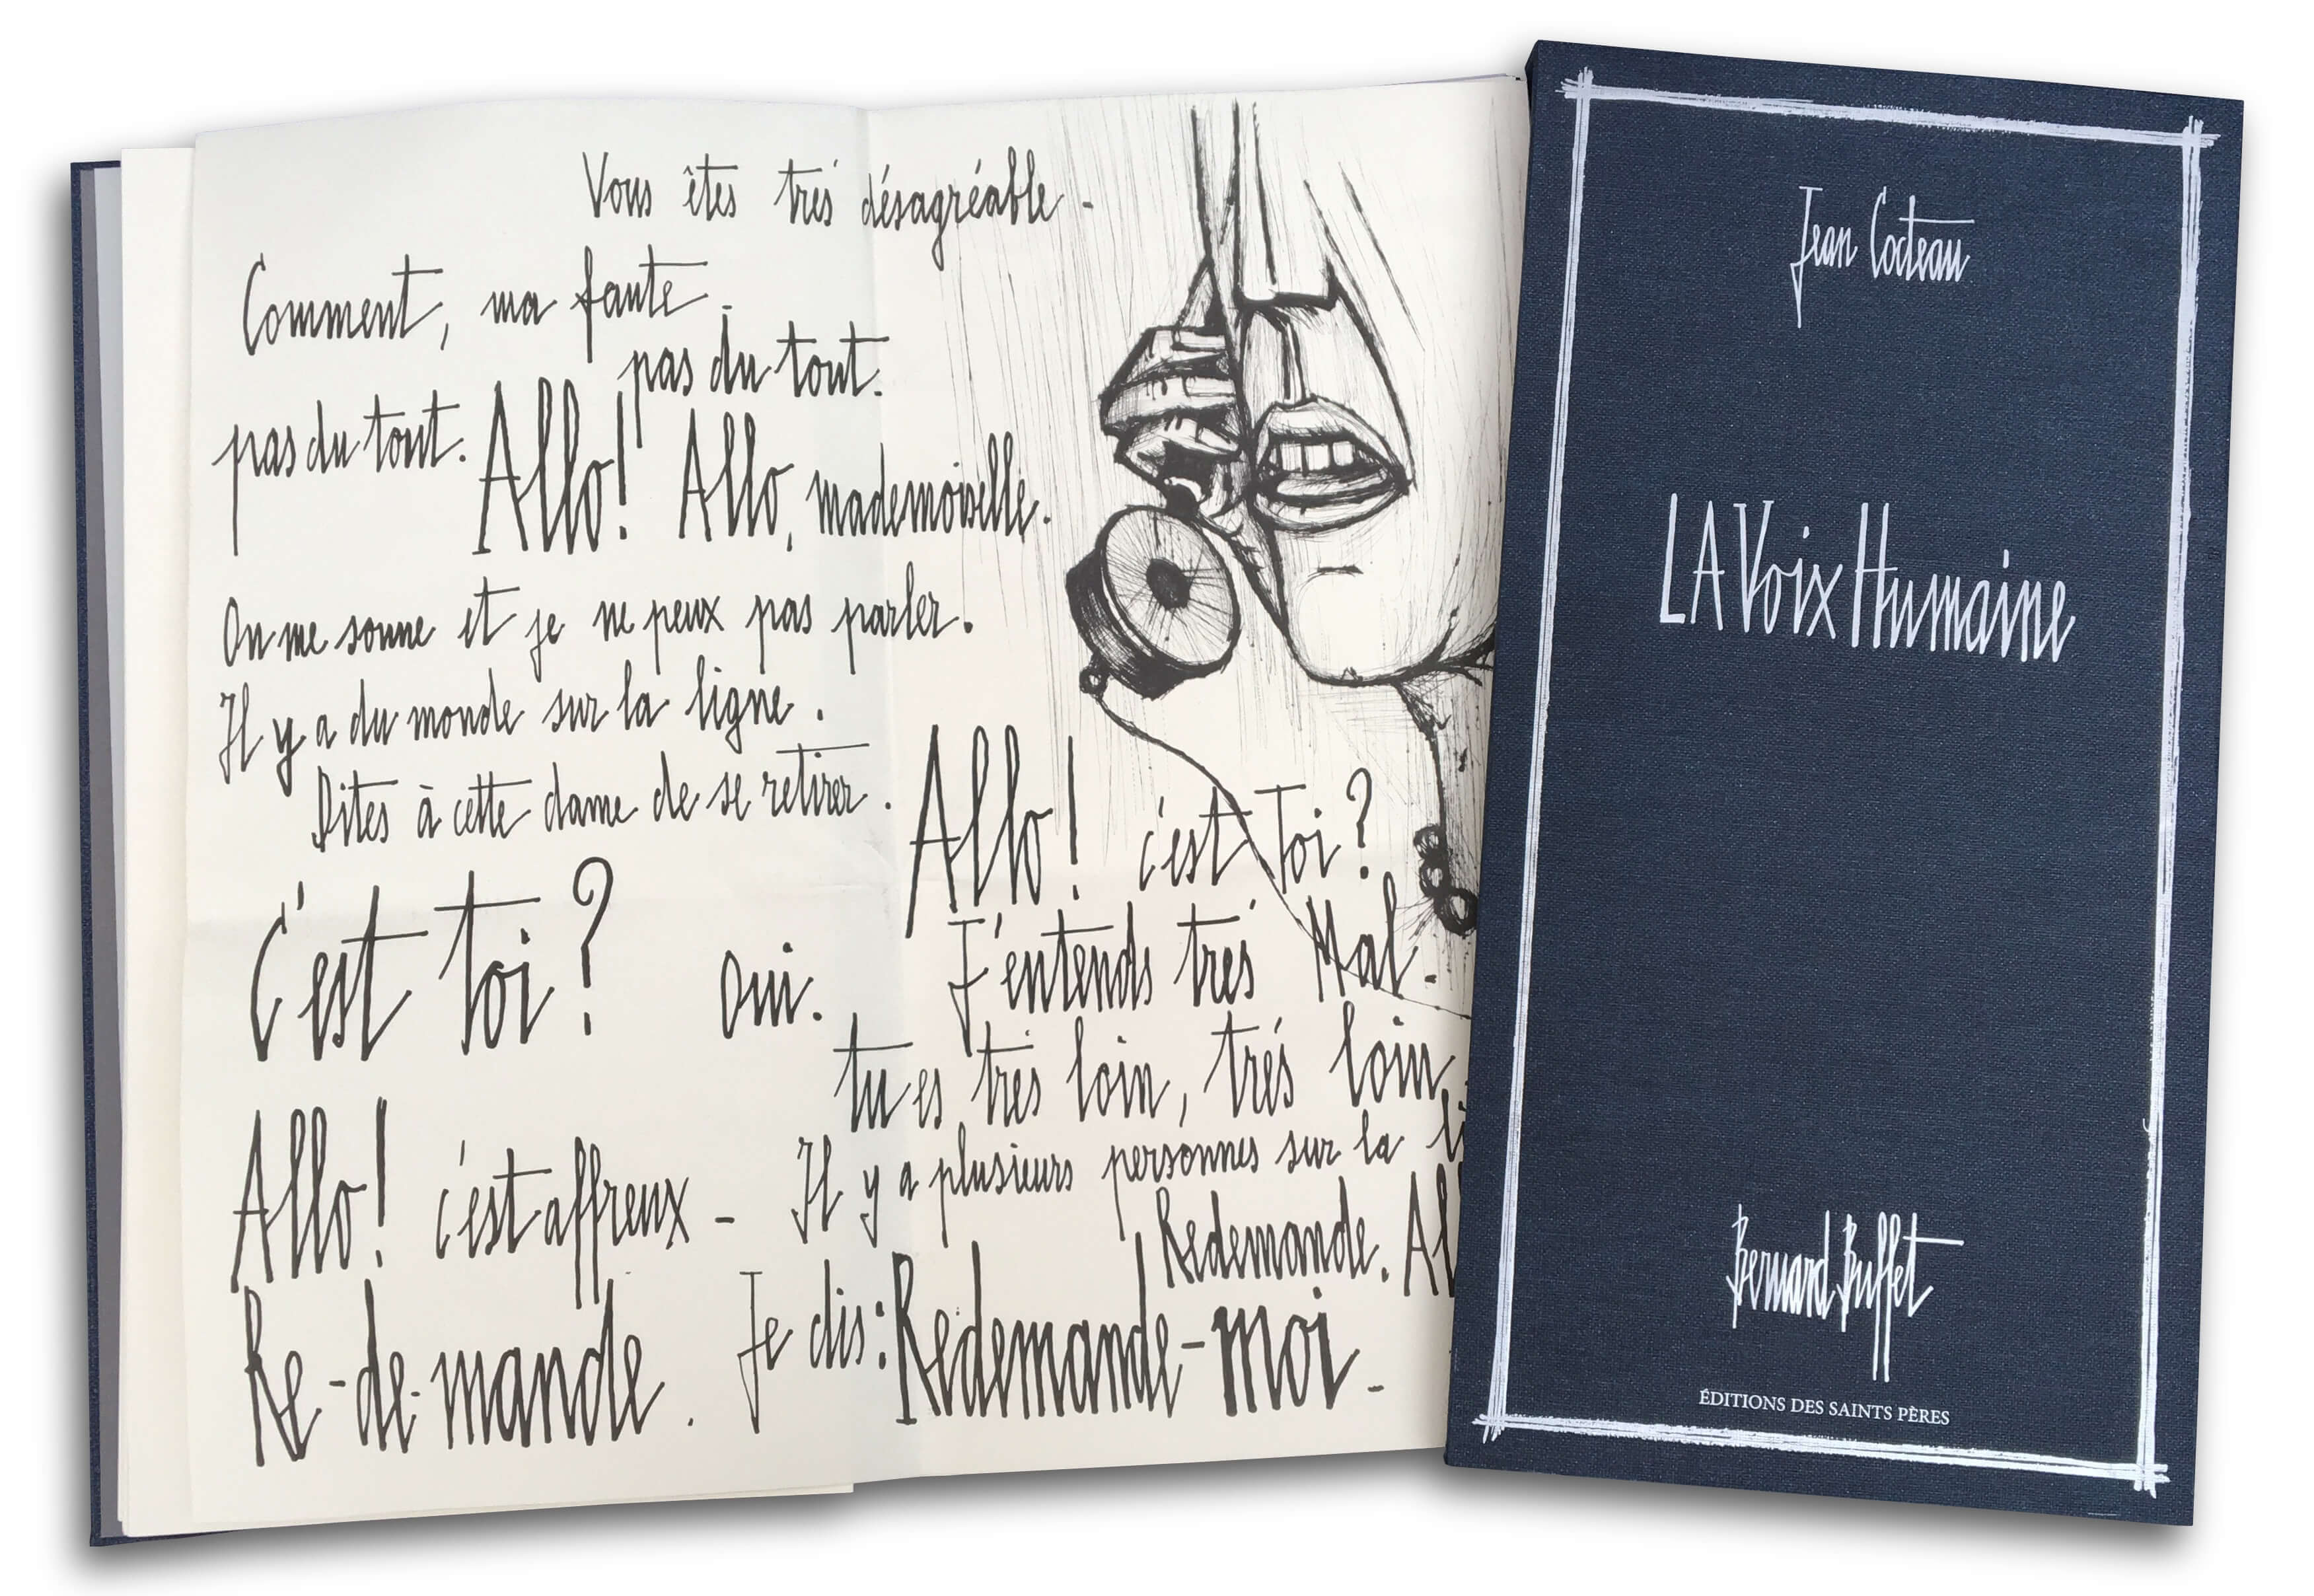 Vous êtes trés désagréable -
Comment, ma faute -
pas du tout.
pas du tout. Allo! Allo, mademoiselle.
On me sonne et je ne peux pas parler.
Il y a du monde sur la ligne.
Dites à cette dame de se retirer.
Allo! c'est Toi?
C'est toi? Oui. J'entends trés Mal -
tu es trés loin, trés loin
Allo! c'est affreux - Il y a plusieurs personnes sur la
Redemande. Al
Re-de-mande. Je dis: Redemande-moi -
Jean Cocteau
LA Voix Humaine
Bernard Buffet
ÉDITIONS DES SAINTS PÈRES